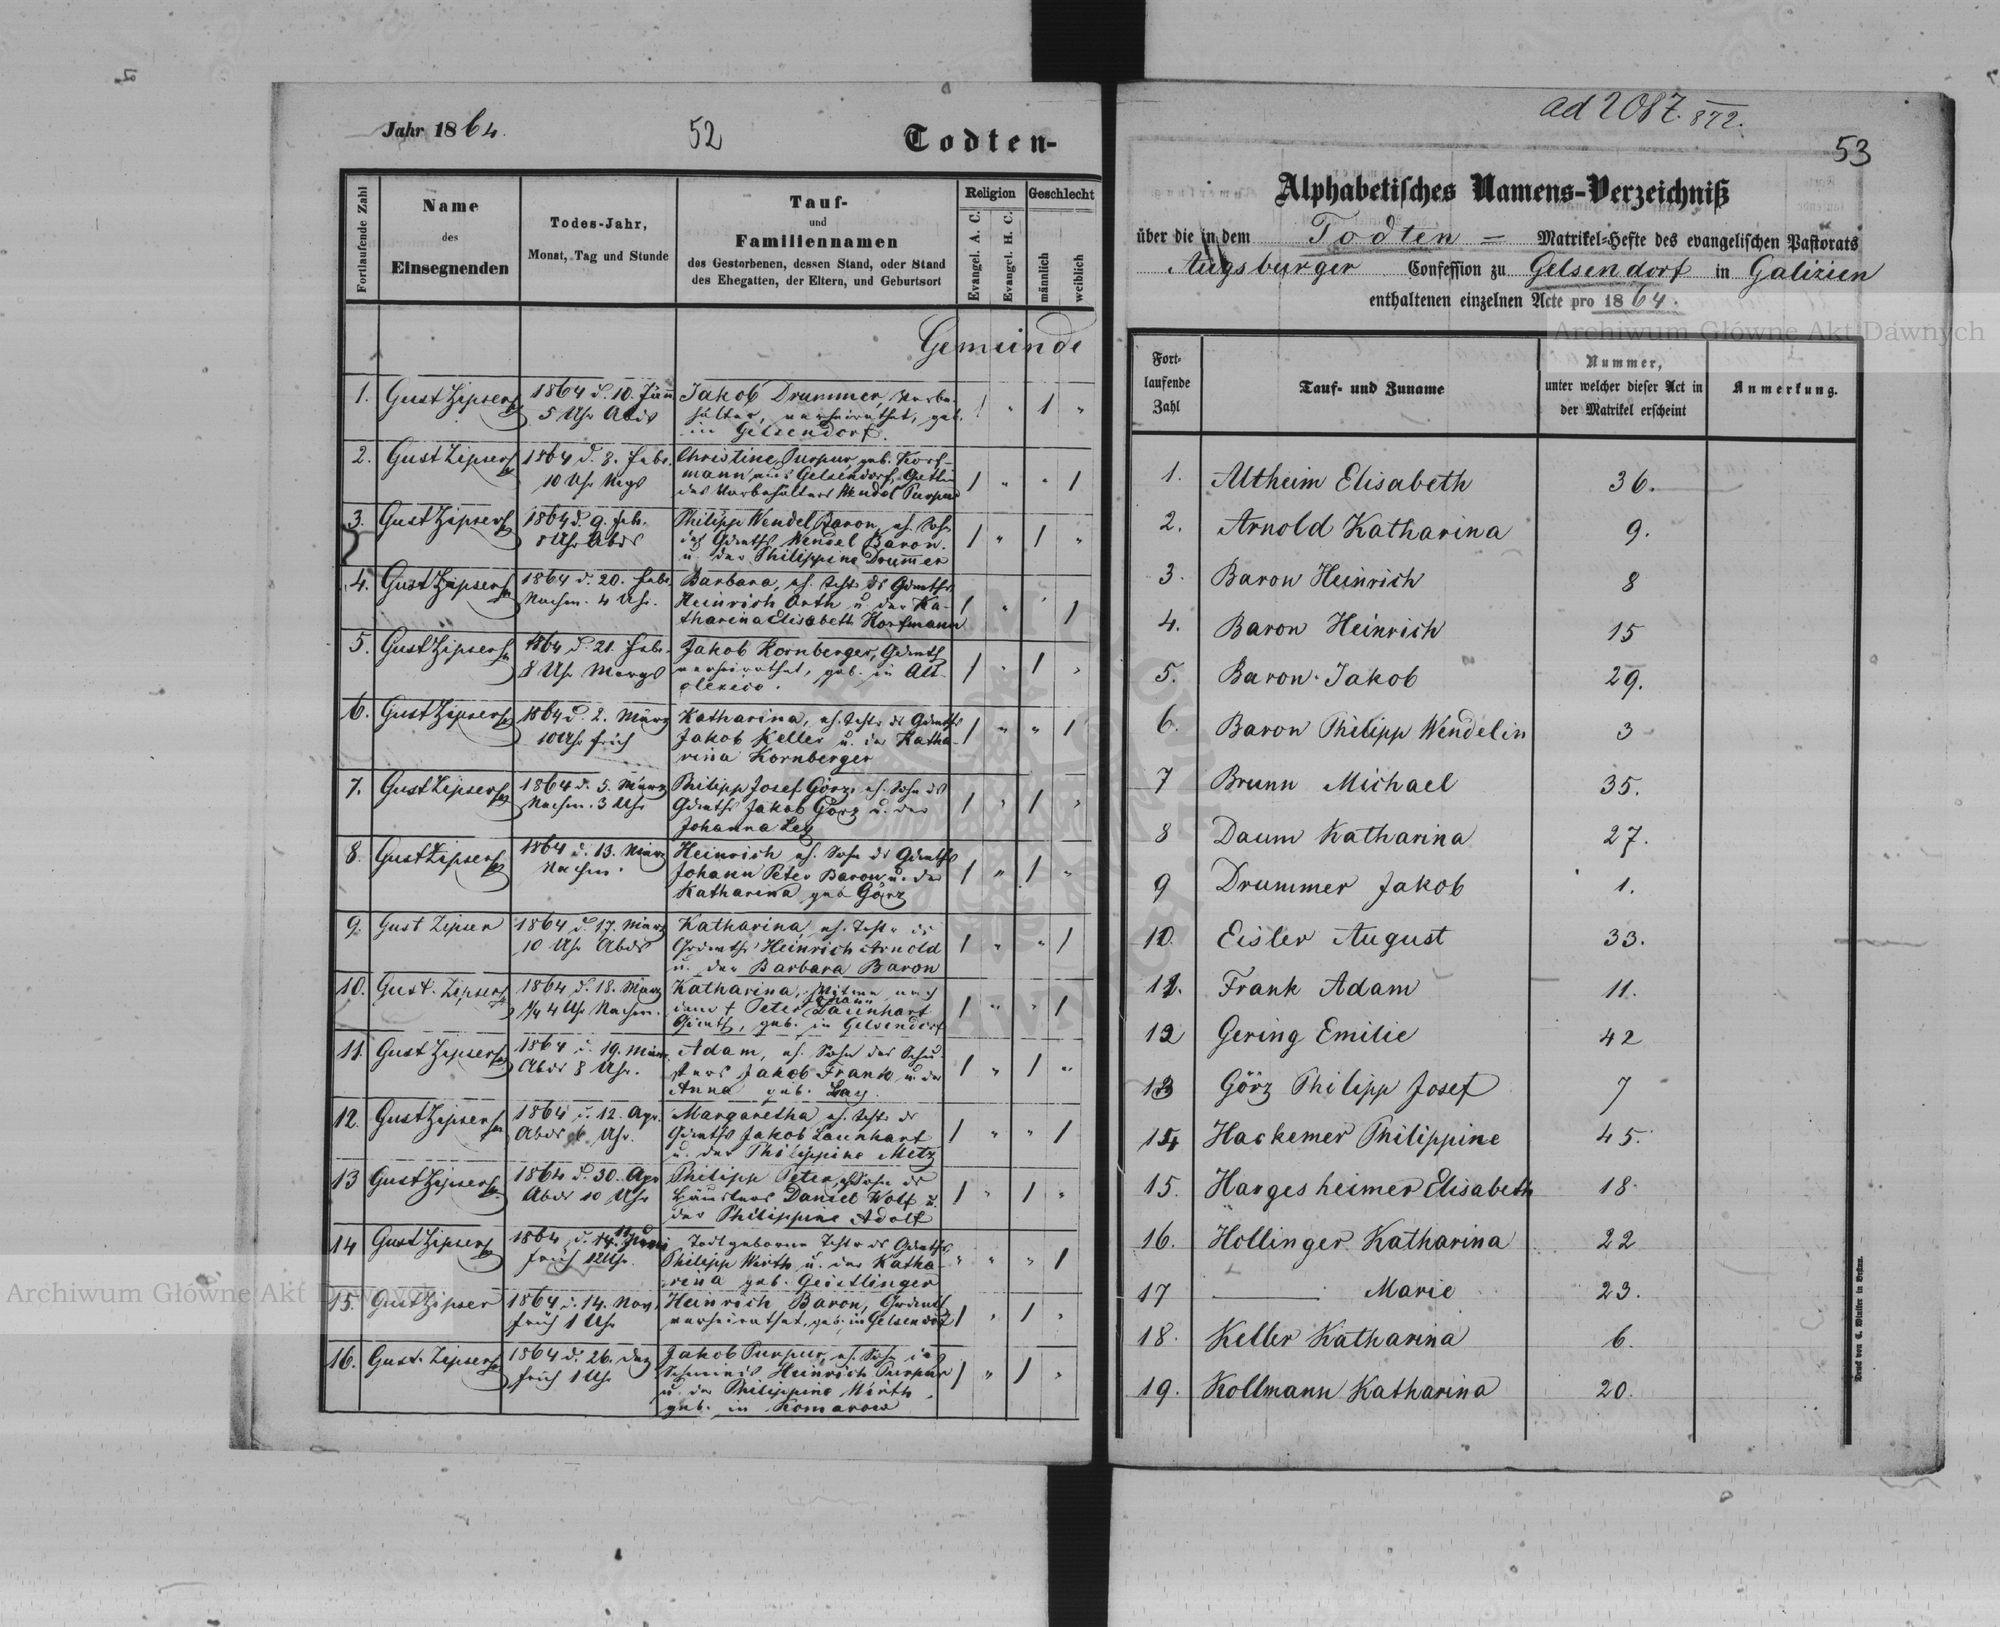 Jahr 1864.
52
Todten-
Fortlaufende Zahl
Name
des
Einsegnenden
Todes-Jahr,
Monat, Tag und Stunde
Tauf-
und
Familiennamen
des Gestorbenen, dessen Stand, oder Stand
des Ehegatten, der Eltern, und Geburtsort
Religion
Geschlecht
Evangel. A. C.
Evangel. H. C.
männlich
weiblich
Gemeinde
1. Gust Zipser 1864 d. 10. Jänn Jakob Drummer,
5 Uhr Abds verheirathet, geb.
in Gelsendorf.
2. Gust Zipser 1864 d. 8. Febr. Christine Purpur, geb. Korf-
10 Uhr Mrgs mann aus Gelsendorf, Gattin
des Vorbehälters Wendel Purpur
3. Gust Zipser 1864 d. 9. Feb. Philipp Wendel Baron, eh. Sohn
8 Uhr Abds des Gdwths Wendel Baron.
u. der Philippine Drummer
4. Gust Zipser 1864 d. 20. Febr. Barbara, eh. Tcht. ds Gdwths
Nachm. 4 Uhr. Heinrich Orth u. der Ka-
tharina Elisabeth Korfmann
5. Gust Zipser 1864 d. 21. Febr. Jakob Kornberger, Gdwth
8 Uhr Morgs verheirathet, geb. in Alt-
olexico.
6. Gust Zipser 1864 d. 2. März Katharina, eh. Tcht. ds Gdwths
10 Uhr früh Jakob Keller u. der Katha-
rina Kornberger
7. Gust Zipser 1864 d. 5. März Philipp Josef Görz, eh. Sohn ds
Nachm. 3 Uhr Gdwths Jakob Görz u. der
Johanna Ley
8. Gust Zipser 1864 d. 13. März Heinrich eh. Sohn ds Gdwths
Nachm. Johann Peter Baron u. der
Katharina geb Görz
9. Gust Zipser 1864 d. 17. März Katharina, eh. Tcht. ds
10 Uhr Abds Grdwths Heinrich Arnold
u. der Barbara Baron
10. Gust. Zipser 1864 d. 18. März Katharina, Witwe nach
Johann
3/4 4 Uhr Nachm. dem † Peter Launhart
Gdwth, geb. in Gelsendorf
11. Gust Zipser 1864 d. 19. März Adam, eh. Sohn des Schu-
Abds 8 Uhr. sters Jakob Frank u. der
Anna geb. Lay.
12. Gust Zipser 1864 d. 12. Apr. Margaretha eh. Tcht. ds
Abds 6 Uhr. Gdwths Jakob Launhart
u. der Philippine Metz
13 Gust Zipser 1864 d. 30. Apr Philipp Peter, eh Sohn ds
Abds 10 Uhr Häuslers Daniel Wolf u.
der Philippine Adolf
14 Gust Zipser 1864 d. Juni Todtgeborne Tcht. ds Gdwths
früh 12 Uhr. Philipp Wirth u. der Katha-
rina geb. Geistlinger
15. Gust Zipser 1864 d. 14. Nov. Heinrich Baron, Grdwth
früh 1 Uhr verheirathet, geb. in Gelsendorf
16. Gust. Zipser 1864 d. 26. Dez Jakob Purpur, eh. Sohn des
früh 1 Uhr Schmieds Heinrich Purpur
u. der Philippine Wirth,
geb. in Komarow
ad 2087. 872.
53
Alphabetisches Namens-Verzeichniß
über die in dem Todten- Matrikel-Hefte des evangelischen Pastorats
Augsburger Confession zu Gelsendorf in Galizien
enthaltenen einzelnen Acte pro 1864.
Fort-
laufende
Zahl
Tauf- und Zuname
Nummer,
unter welcher dieser Act in
der Matrikel erscheint
Anmerkung.
1. Altheim Elisabeth 36.
2. Arnold Katharina 9.
3. Baron Heinrich 8
4. Baron Heinrich 15
5. Baron Jakob 29.
6. Baron Philipp Wendelin 3
7 Brunn Michael 35.
8 Daum Katharina 27.
9 Drummer Jakob 1.
10. Eisler August 33.
11. Frank Adam 11.
12 Gering Emilie 42
13 Görz Philipp Josef 7
14 Hackemer Philippine 45.
15. Hargesheimer Elisabeth 18
16. Hollinger Katharina 22
17 — Marie 23.
18. Keller Katharina 6.
19. Kollmann Katharina 20.
Druck von C. Winiker in Brünn.
Archiwum Główne Akt Dawnych
Archiwum Główne Akt Dawnych